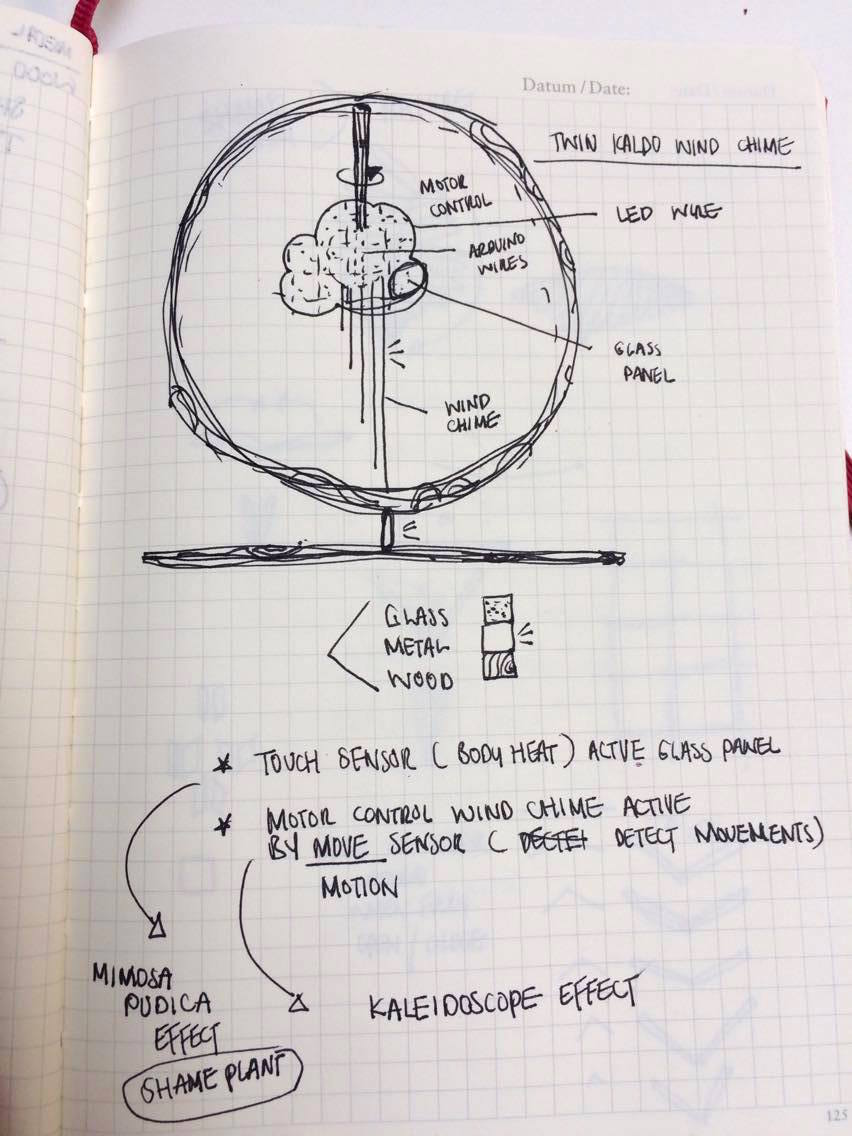 Datum / Date:
TWIN KALDO WIND CHIME
MOTOR
CONTROL
LED WIRE
ARDUINO
WIRES
GLASS
PANEL
WIND
CHIME
GLASS
METAL
WOOD
* TOUCH SENSOR ( BODY HEAT ) ACTVE GLASS PANEL
* MOTOR CONTROL WIND CHIME ACTIVE
BY MOVE SENSOR ( DETECT MOVEMENTS)
MOTION
MIMOSA
PUDICA
EFFECT
SHAME PLANT
KALEIDOSCOPE EFFECT
125